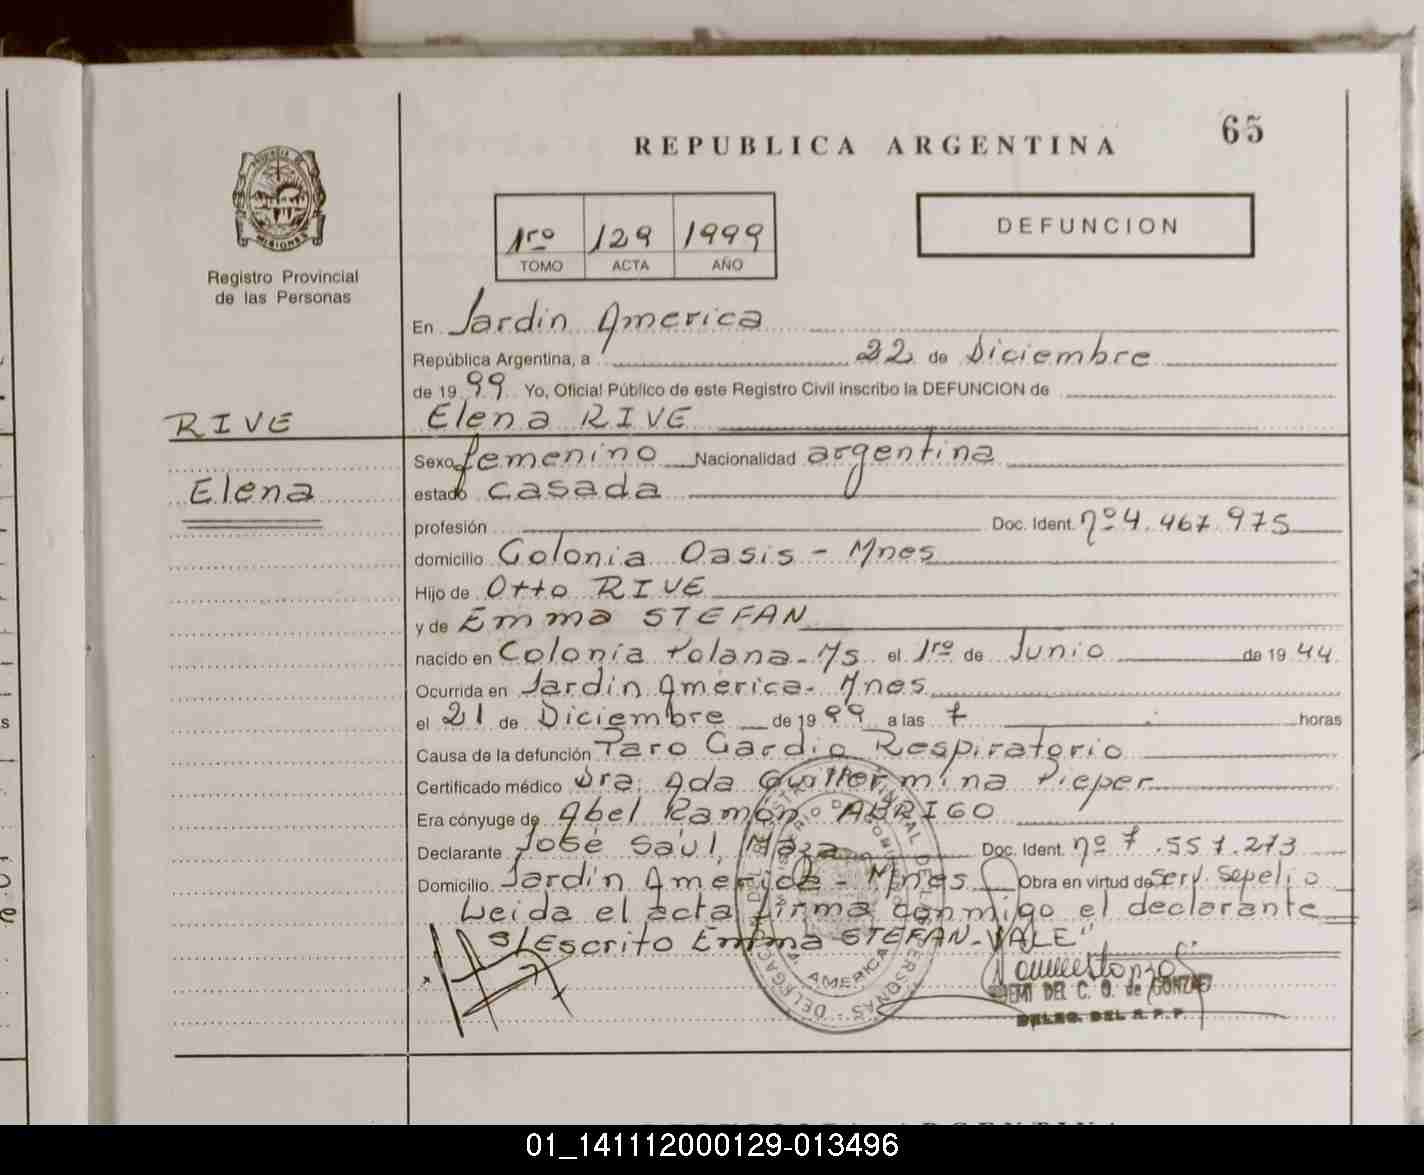 65
REPUBLICA ARGENTINA
PROVINCIA DE
MISIONES
Registro Provincial
de las Personas
1ro 129 1999
TOMO ACTA AÑO
DEFUNCION
En Jardin America
República Argentina, a 22 de Diciembre
de 1999 Yo, Oficial Público de este Registro Civil inscribo la DEFUNCION de
RIVE
Elena RIVE
Sexo femenino Nacionalidad argentina
Elena
estado casada
profesión Doc. Ident. nº 4.467.975
domicilio Colonia Oasis - Mnes
Hijo de Otto RIVE
y de Emma STEFAN
nacido en Colonia Polana - Ms el 1ro de Junio de 1944
Ocurrida en Jardin America - Mnes
el 21 de Diciembre de 1999 a las 7 horas
Causa de la defunción Paro Cardio Respiratorio
Certificado médico Dra. Ada Guillermina Pieper
Era cónyuge de Abel Ramón ABRIGO
Declarante José Saúl Maza Doc. Ident. nº 7.557.273
Domicilio Jardin America - Mnes Obra en virtud de Serv. Sepelio
Leida el acta firma conmigo el declarante
S/Escrito Emma STEFAN - VALE"
AMERICA
DEL C. O. de GONZALEZ
DELEG. DEL R. P. P.
01_141112000129-013496